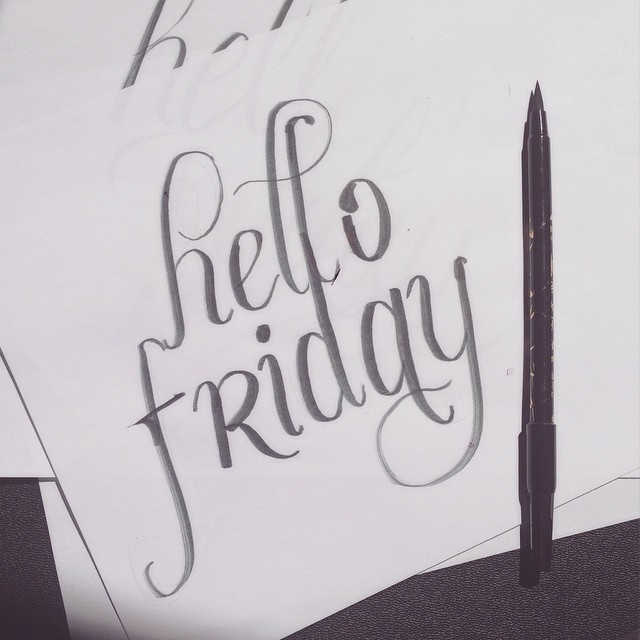 hello
fRiday